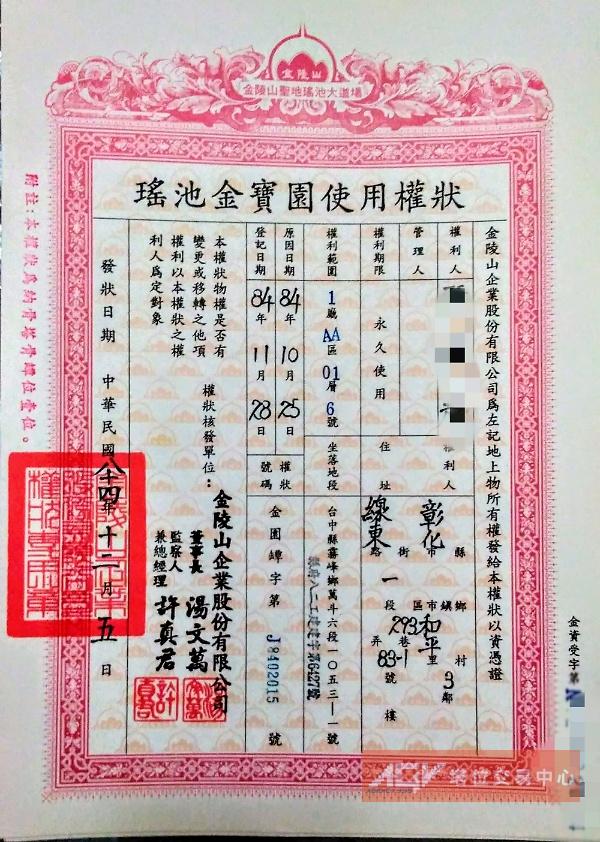 金陵山
金陵山聖地瑤池大道場
瑤池金寶園使用權狀
金陵山企業股份有限公司為左記地上物所有權發給本權狀以資憑證
權利人
管理人
權利期限 永久使用
權利範圍 1廳AA區01層6號
原因日期 84年10月25日
登記日期 84年11月28日
權利人住址
彰化縣市 鄉鎮市 和平里村 3鄰
線東路街一段293巷弄83-1號 樓
坐落地段
台中縣霧峰鄉萬斗六段一〇五三—一號
權狀號碼 金園罈字第J8402015號
本權狀物權是否有
變更或移轉之他項
權利以本權狀之權
利人為定對象
權狀核發單位：
金陵山企業股份有限公司
董事長 湯文萬
監察人
兼總經理 許真君
發狀日期 中華民國八十四年十二月五日
附註：本權狀為納骨塔骨罈位壹位。
金資受字第
塔位交易中心